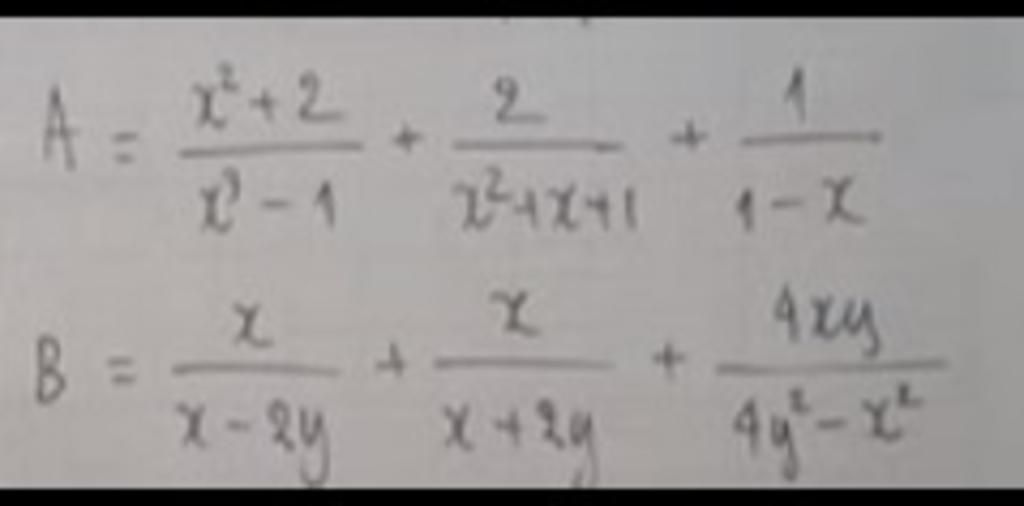 A = \frac{x^2+2}{x^3-1} + \frac{2}{x^2+x+1} + \frac{1}{1-x}
B = \frac{x}{x-2y} + \frac{x}{x+2y} + \frac{4xy}{4y^2-x^2}